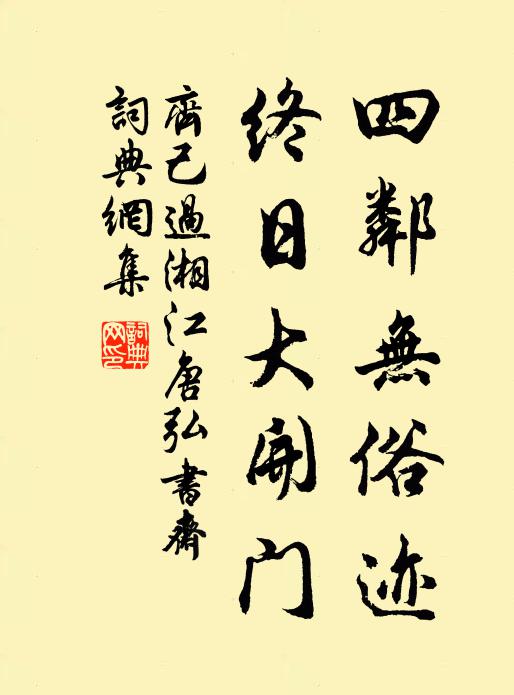 四鄰無俗迹
終日大開門
齊己過湘江唐弘書齋
詞典網集
詞典网印